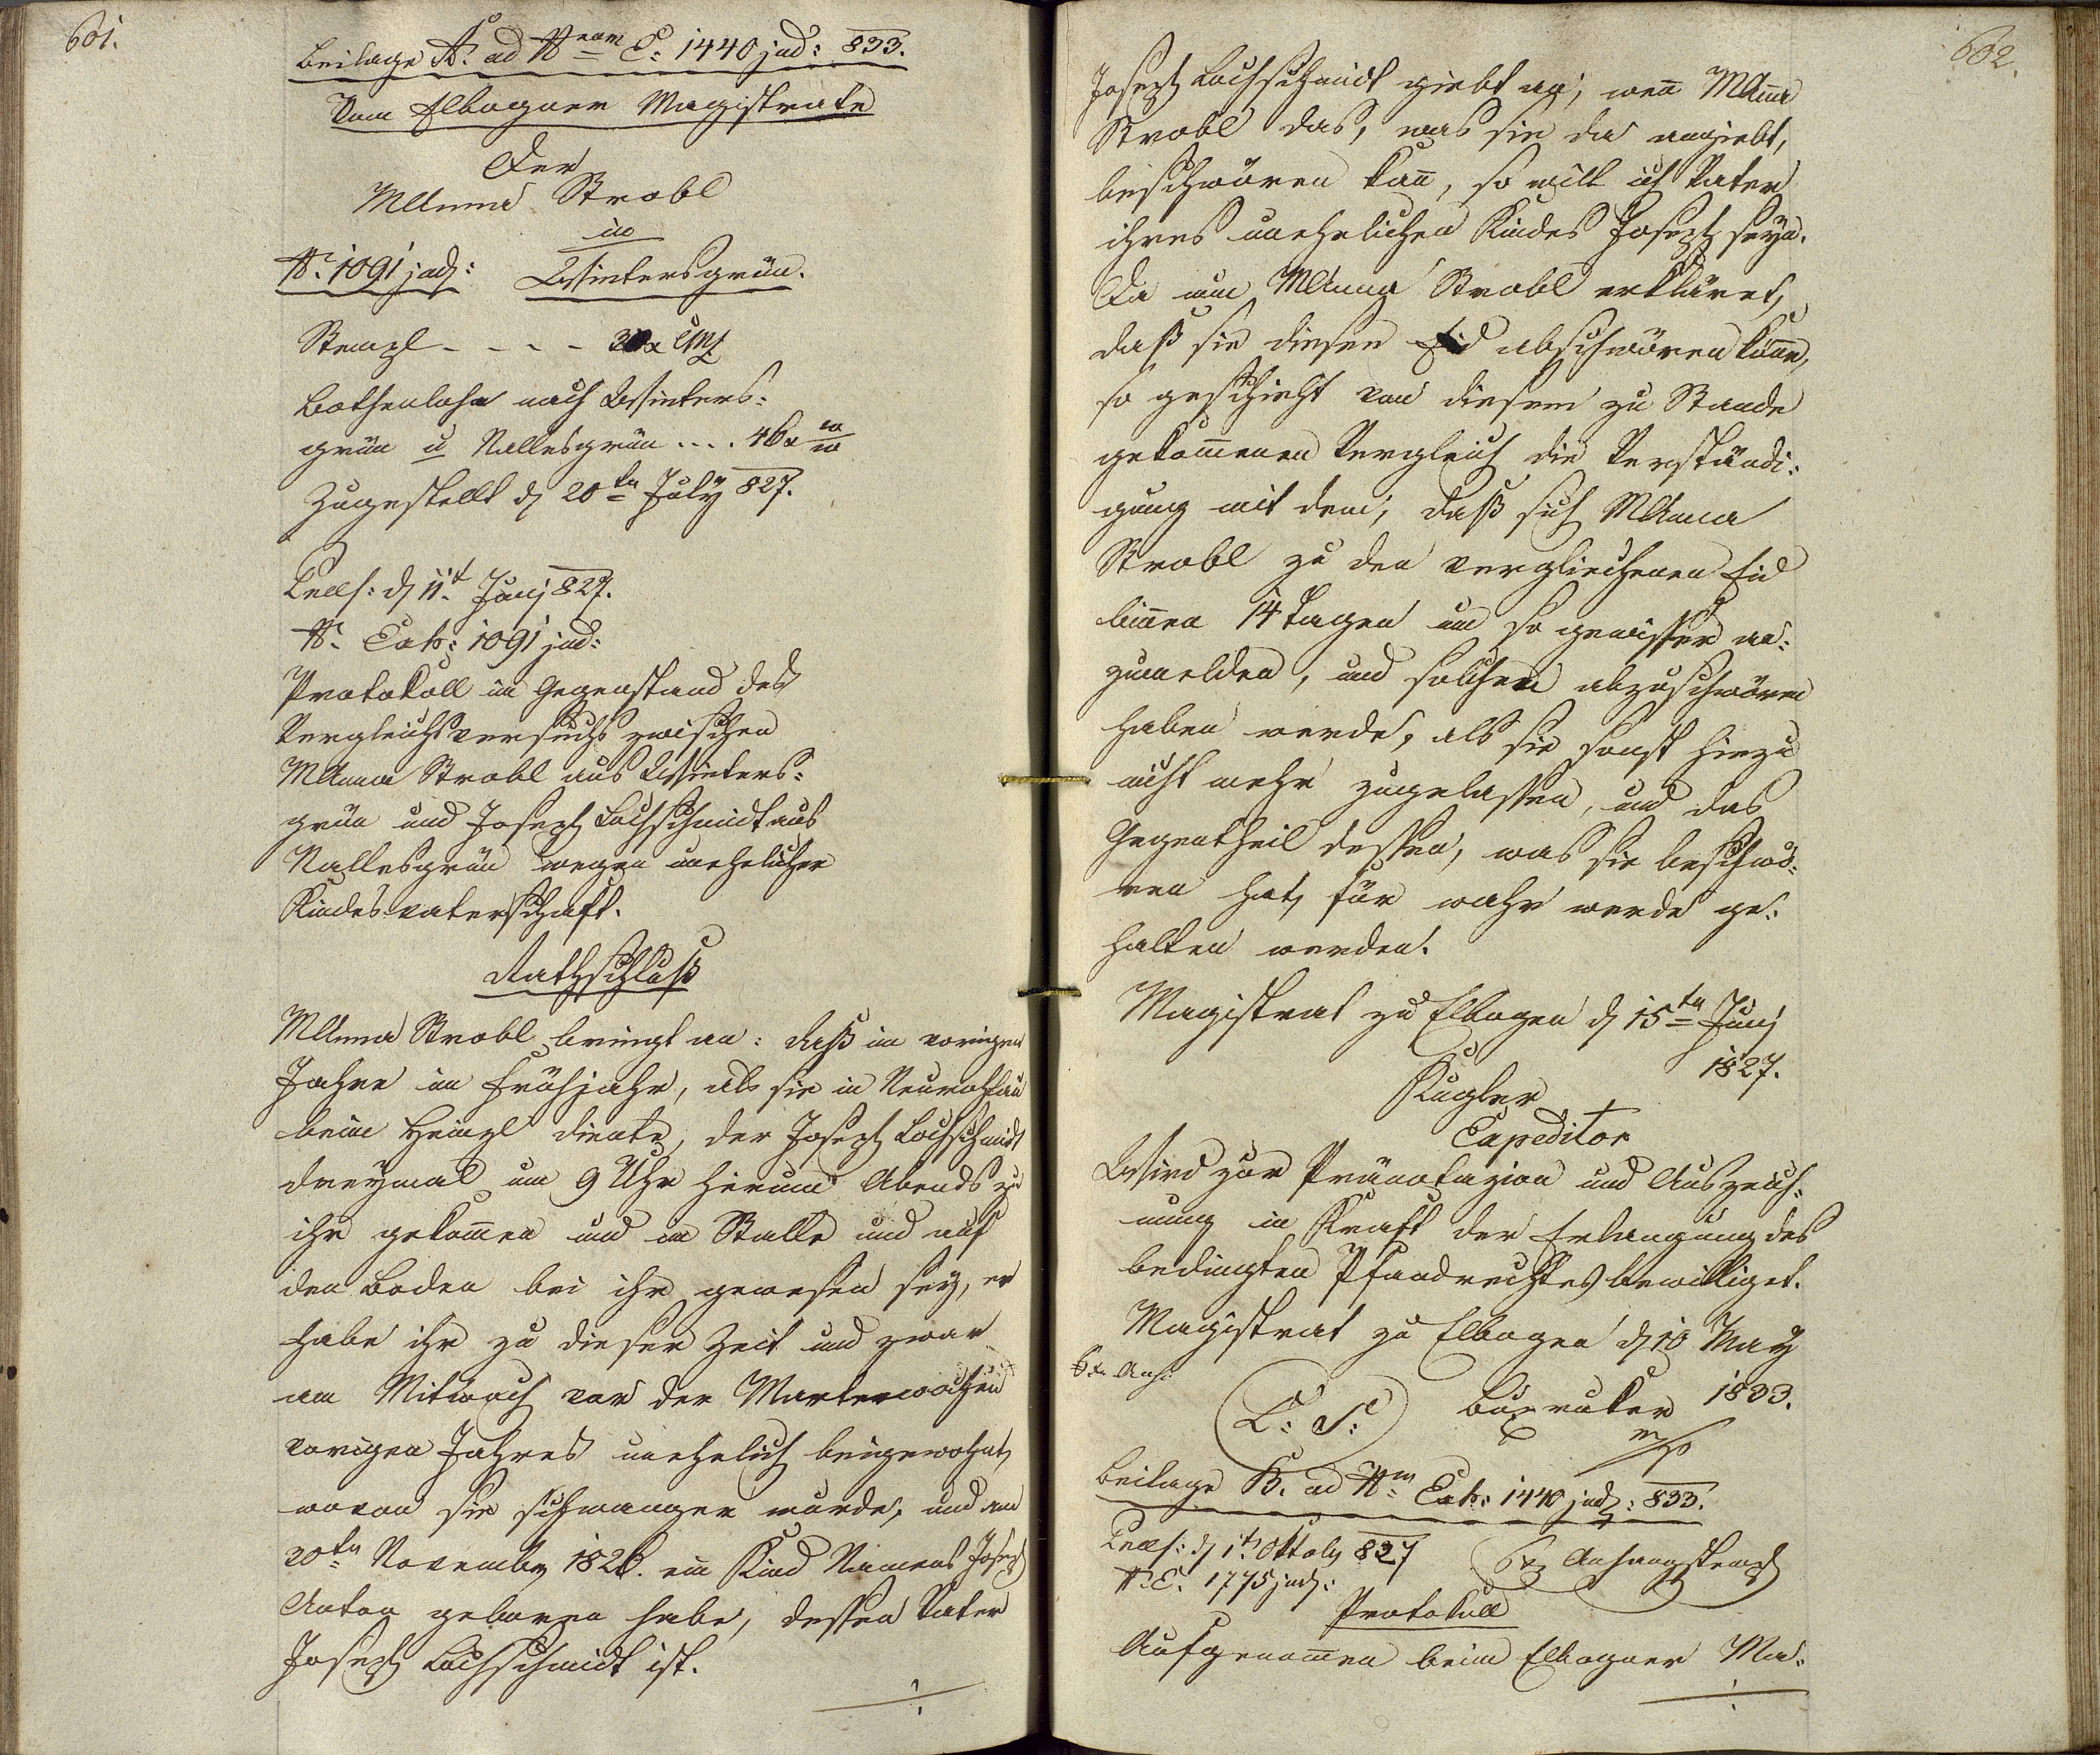 601.
Beilage A. ad Nram E: 1440 jud: 833.
Vom Elbogner Magistrate
Der
MAnna Strobl
in
N. 1091 jud: Wintersgrün.
Stempl - - - - 30x CMz
Bothenlohn nach Winters:
grün u Nallesgrün .... 46x ww
Zugestellt d 20ten July 827.
Præs: d 11t Junj 827.
N. Exh: 1091 jud:
Protokoll im Gegenstand des
Vergleichsversuchs zwischen
MAnna Strobl aus Winters:
grün und Joseph Lochschmidt aus
Nallesgrün wegen unehelicher
Kindesvaterschaft.
Rathschluß
MAnna Strobl bringt an: daß im vorigen
Jahre im Frühjahr, als sie in Neurohlau
beim Heinzl diente, der Joseph Lochschmidt
dreymal um 9 Uhr herum Abends zu
ihr gekommen und im Stalle und auf
den Boden bei ihr gewesen sey, er
habe ihr zu dieser Zeit und zwar
am Mitwoch vor der Marterwochen
vorigen Jahres unehelich beigewohnt,
wovon sie schwanger wurde, und am
20ten November 1826. ein Kind Namens Joseph
Anton geboren habe, dessen Vater
Joseph Lochschmidt ist.
602.
Joseph Lochschmidt giebt an; wenn MAnna
Strobl das, was sie da angiebt,
beschwören kann, so will ich Vater
ihres unehelichen Kindes Joseph seyn.
Da nun MAnna Strobl erkläret,
daß sie diesen Eid abschwören könne,
so geschieht von diesem zu Stande
gekommenen Vergleich die Verständi:
gung mit dem, daß sich MAnna
Strobl zu den verglichenen Eid
binnen 14 Tagen um so gewisser an:
zumelden, und solchen abzuschwören
haben werde, als sie sonst hiezu
nicht mehr zugelassen, und das
Gegentheil dessen, was sie beschwo:
ren hat, für wahr werde ge:
halten werden.
Magistrat zu Elbogen d 15ten Junj
1827.
Kugler
Expeditor
Wird zur Pränotazion und Auszeich:
nung in Kraft der Erlangung des
bedingten Pfandrechtes bewilliget.
Magistrat zu Elbogen d 10 May
1833.
6x Anh:
L: S:
mp
Beilage B. ad Nrm Exh: 1440 jud: 833.
Præs: d 1t Oktob 827
6x Anhangstempl
N.E. 1775 jud:
Protokoll
Aufgenommen beim Elbogner Ma: